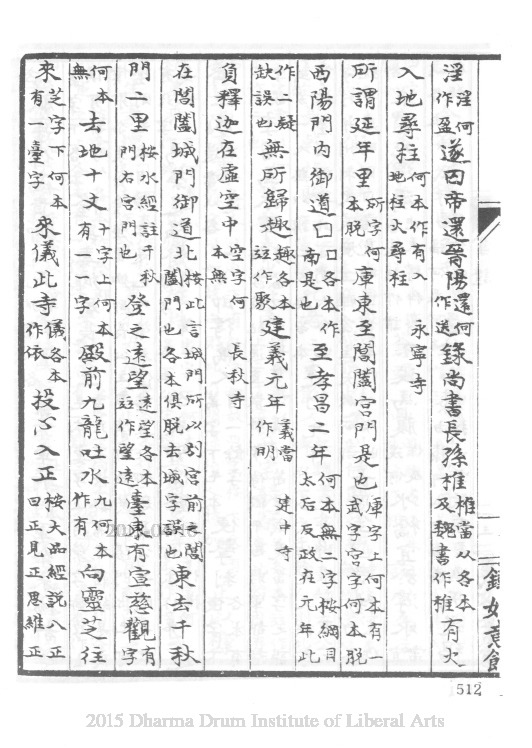 淫淫何作盈遂囚帝還晉陽還何作送錄尚書長孫椎椎當从各本及魏書作稚有火
入地尋柱何本作有入地柱火尋柱 永寧寺
所謂延年里所字何本脫庫東至閶闔宮門是也庫字上何本有一武字宮字何本脫
西陽門內御道囗囗各本作南是也至孝昌二年何本無二字按綱目太后反政在元年此
作二疑缺誤也無所歸趣趣各本竝作聚建義元年義當作明 建中寺
負釋迦在虛空中空字何本無 長秋寺
在閶闔城門御道北按此言城門所以別宮前之閶闔門也各本俱脫去城字誤也東去千秋
門二里按水經註千秋門右宮門也登之遠望遠望各本竝作望遠臺東有宣慈觀有字
何本無去地十丈十字上何本有一一字殿前九龍吐水九何本作有向靈芝往
來芝字下何本有一臺字來儀此寺儀各本作依投心入正按大品經說八正曰正見正思維正
512
2015 Dharma Drum Institute of Liberal Arts